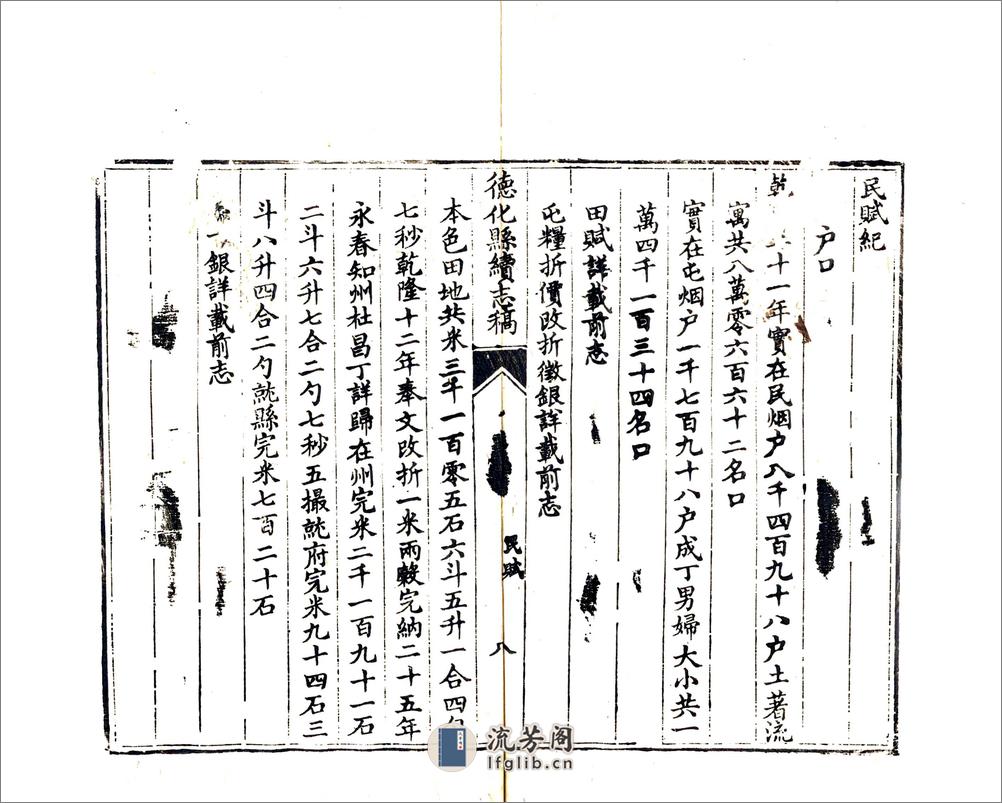 民賦紀
户口
乾十一年實在民烟户八千四百九十八户土著流
寓共八萬零六百六十二名口
實在屯烟户一千七百九十八户成丁男婦大小共一
萬四千一百三十四名口
田賦詳載前志
屯糧折價改折徵銀詳載前志
德化縣續志稿
民賦
八
本色田地共米三千一百零五石六斗五升一合四勺
七秒乾隆十二年奉文改折一米兩穀完納二十五年
永春知州杜昌丁詳歸在州完米二千一百九十一石
二斗六升七合二勺七秒五撮就府完米九十四石三
斗八升四合二勺就縣完米七百二十石
銀詳載前志
流芳阁
lfglib.cn